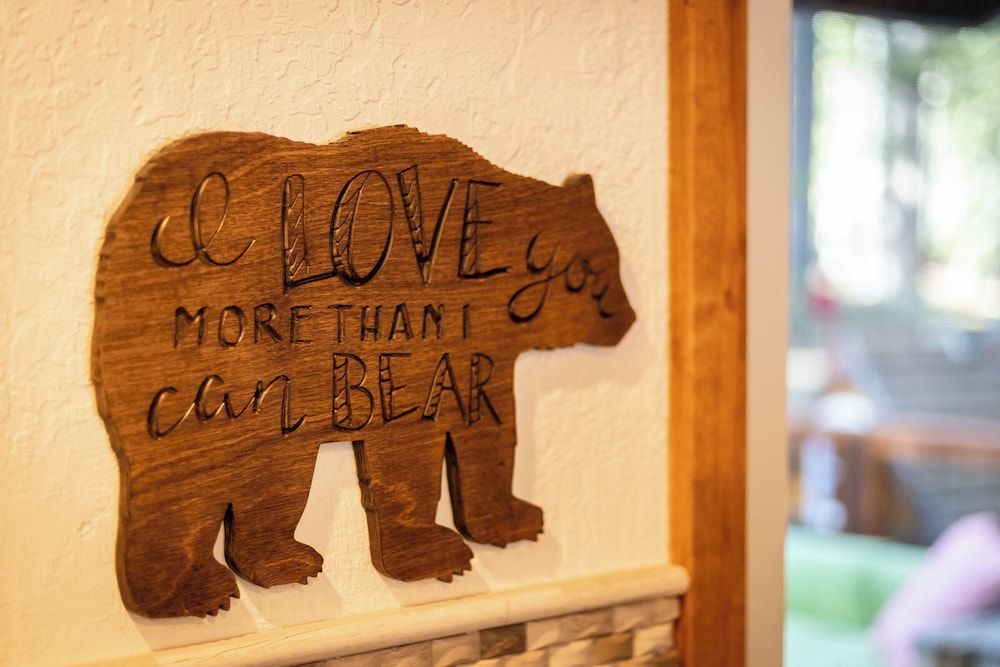 I LOVE you
MORE THAN I
can BEAR